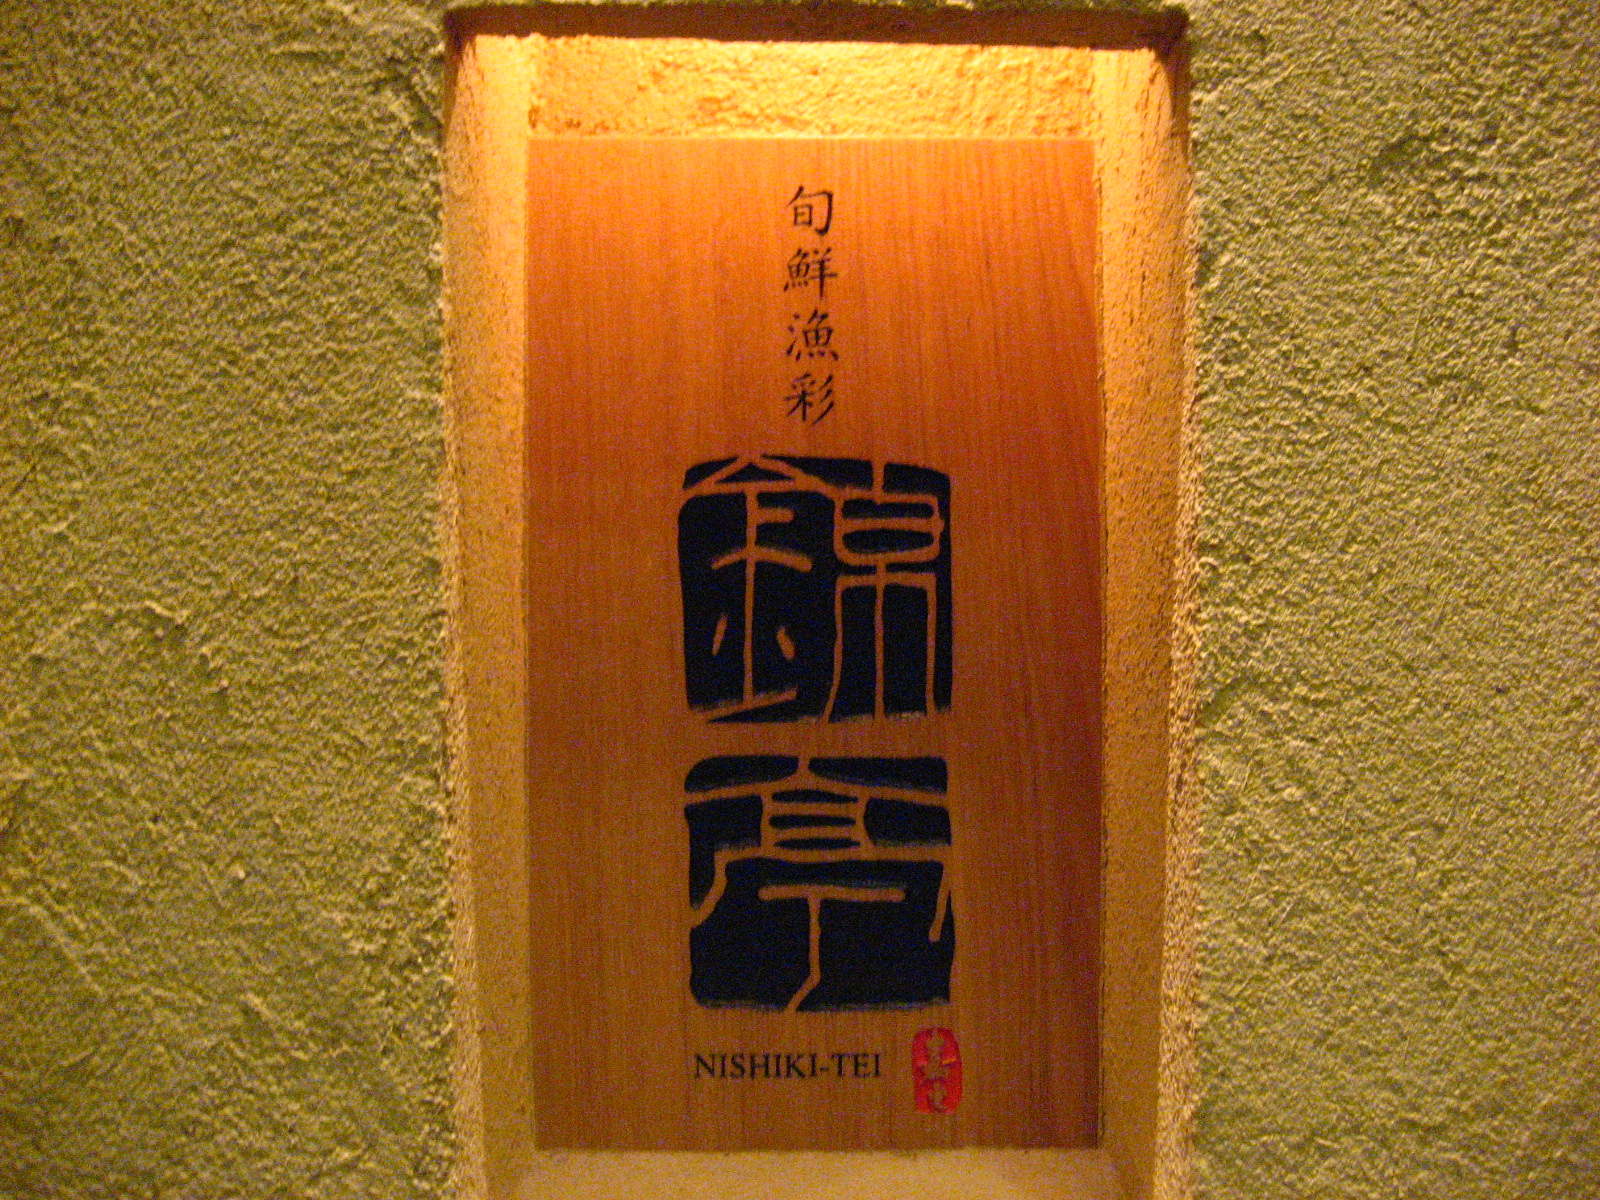 旬鮮漁彩
錦亭
NISHIKI-TEI